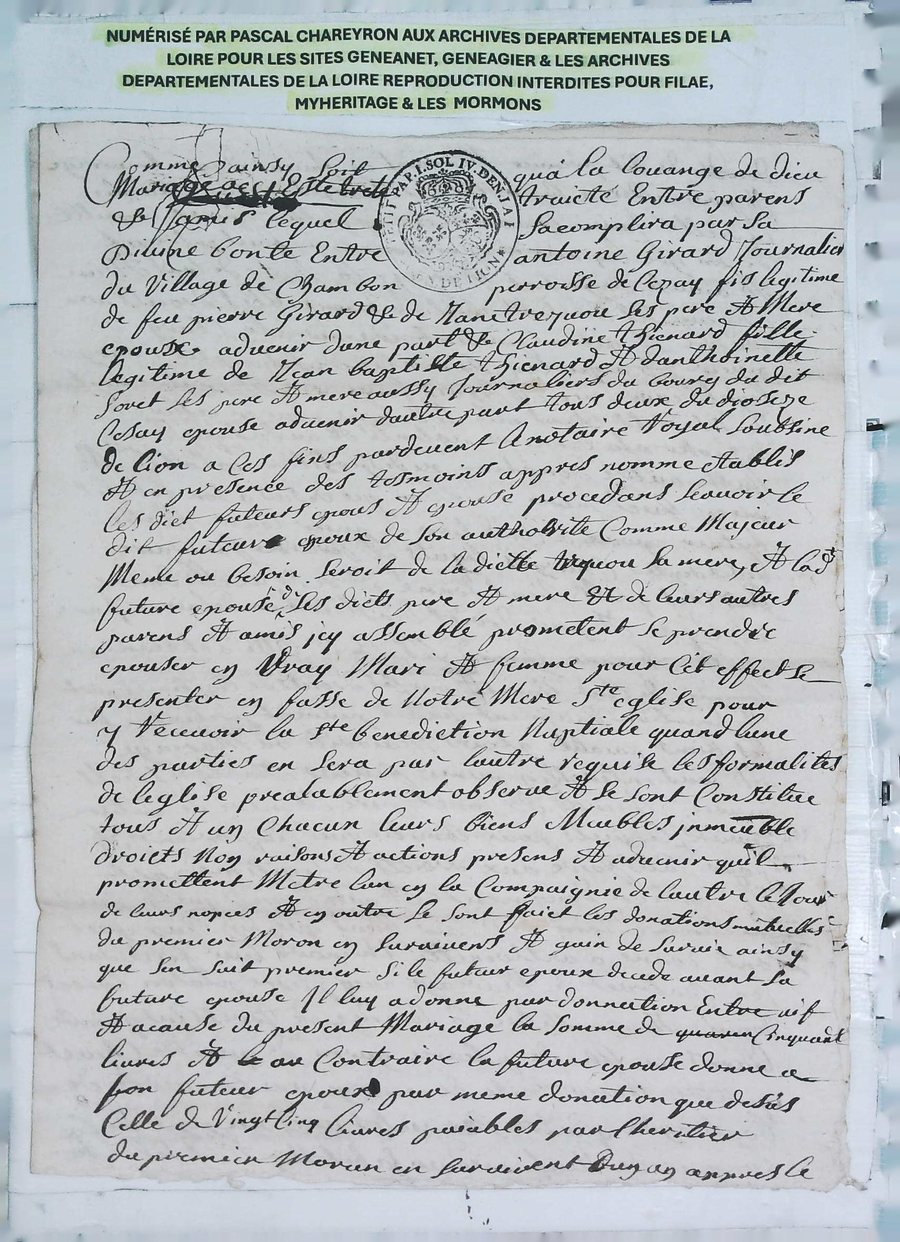 NUMÉRISÉ PAR PASCAL CHAREYRON AUX ARCHIVES DEPARTEMENTALES DE LA
LOIRE POUR LES SITES GENEANET, GENEAGIER & LES ARCHIVES
DEPARTEMENTALES DE LA LOIRE REPRODUCTION INTERDITES POUR FILAE,
MYHERITAGE & LES MORMONS
Comme dainsy soit qua la louange de dieu
Mariage traicte Entre parens
& damis lequel Sacomplira par sa
Diuine bonte Entre antoine Girard Journalier
du Village de Chambon perroisse de Cezay fis legitime
de feu pierre Girard & de les pere Et Mere
epoux aduenir dune part & Claudine thienard fille
legitime de Jean baptiste thienard Et danthoinette
les pere Et mere aussy Journaliers du bourg du dit
Cesay epouse aduenir dautre part tous deux du dioseze
de lion a ces fins pardeuent le notaire Royal Soubsine
Et en presence des tesmoins appres nomme etablis
les diet futeurs epous Et epouse procedans scauoir le
dit futeur epoux de son authorite Comme Majeur
Meme ou besoin seroit de la diette sa mere, Et lad
future epouse des diets pere Et mere Et de leurs autres
parens Et amis jcy assemblé prometent se prendre
epouser en Vray Mari Et femme pour Cet effect se
presenter en fasse de Notre Mere Ste eglise pour
y recevoir la ste benediction Naptiale quand lune
des parties en sera par lautre requise les formalites
de leglise prealablement observe Et se sont Constitue
tous Et un Chacun leurs biens Meubles jnmeuble
droicts Nom raisons Et actions presens Et aduenir quil
promettent Metre lun en la Compaignie de lautre le Jour
de leurs nopces Et en outre se sont faict les donations mutuelles
du premier Moron en suruiuens Et gain de suruie ainsy
que sen suit premier si le futeur epoux decede auant sa
future epouse Jl luy a donne par donnation Entre vif
Et acause du present Mariage la somme de Cinquant
liures Et au Contraire la future epouse donne a
son futeur epoux par meme donation que desus
Celle de Vingt Cinq liures paiables par lheritier
du premier Moran en suruivent un an appres le